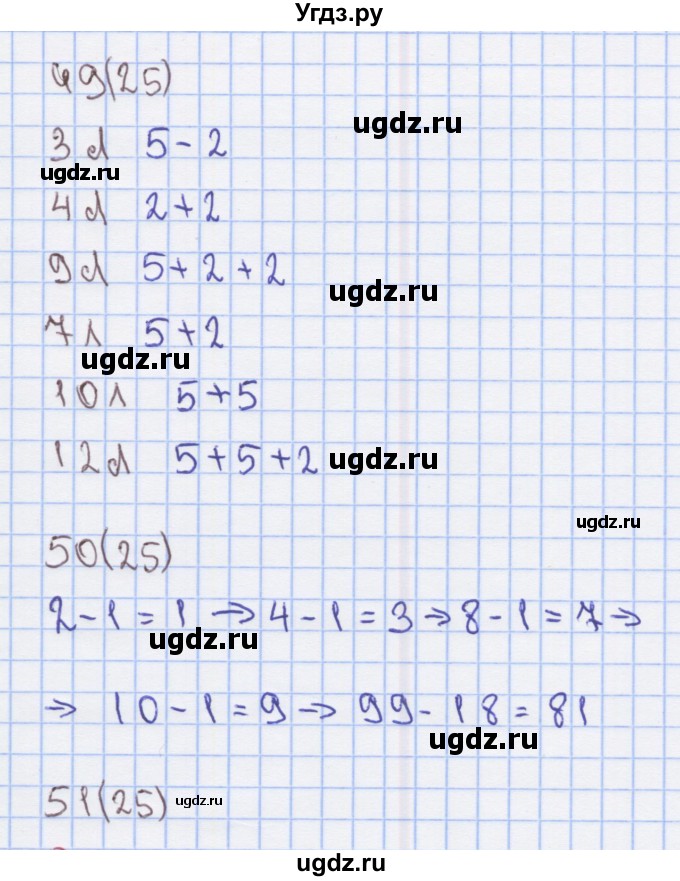 Угдз.ру
49(25)
ugdz.ru
3 л 5 - 2
ugdz.ru
4 л 2 + 2
9 л 5 + 2 + 2
ugdz.ru
7 л 5 + 2
ugdz.ru
10 л 5 + 5
12 л 5 + 5 + 2 ugdz.ru
ugdz.ru
50(25)
2 - 1 = 1 → 4 - 1 = 3 → 8 - 1 = 7 →
ugdz.ru
→ 10 - 1 = 9 → 99 - 18 = 81
ugdz.ru
51(25) ugdz.ru
ugdz.ru